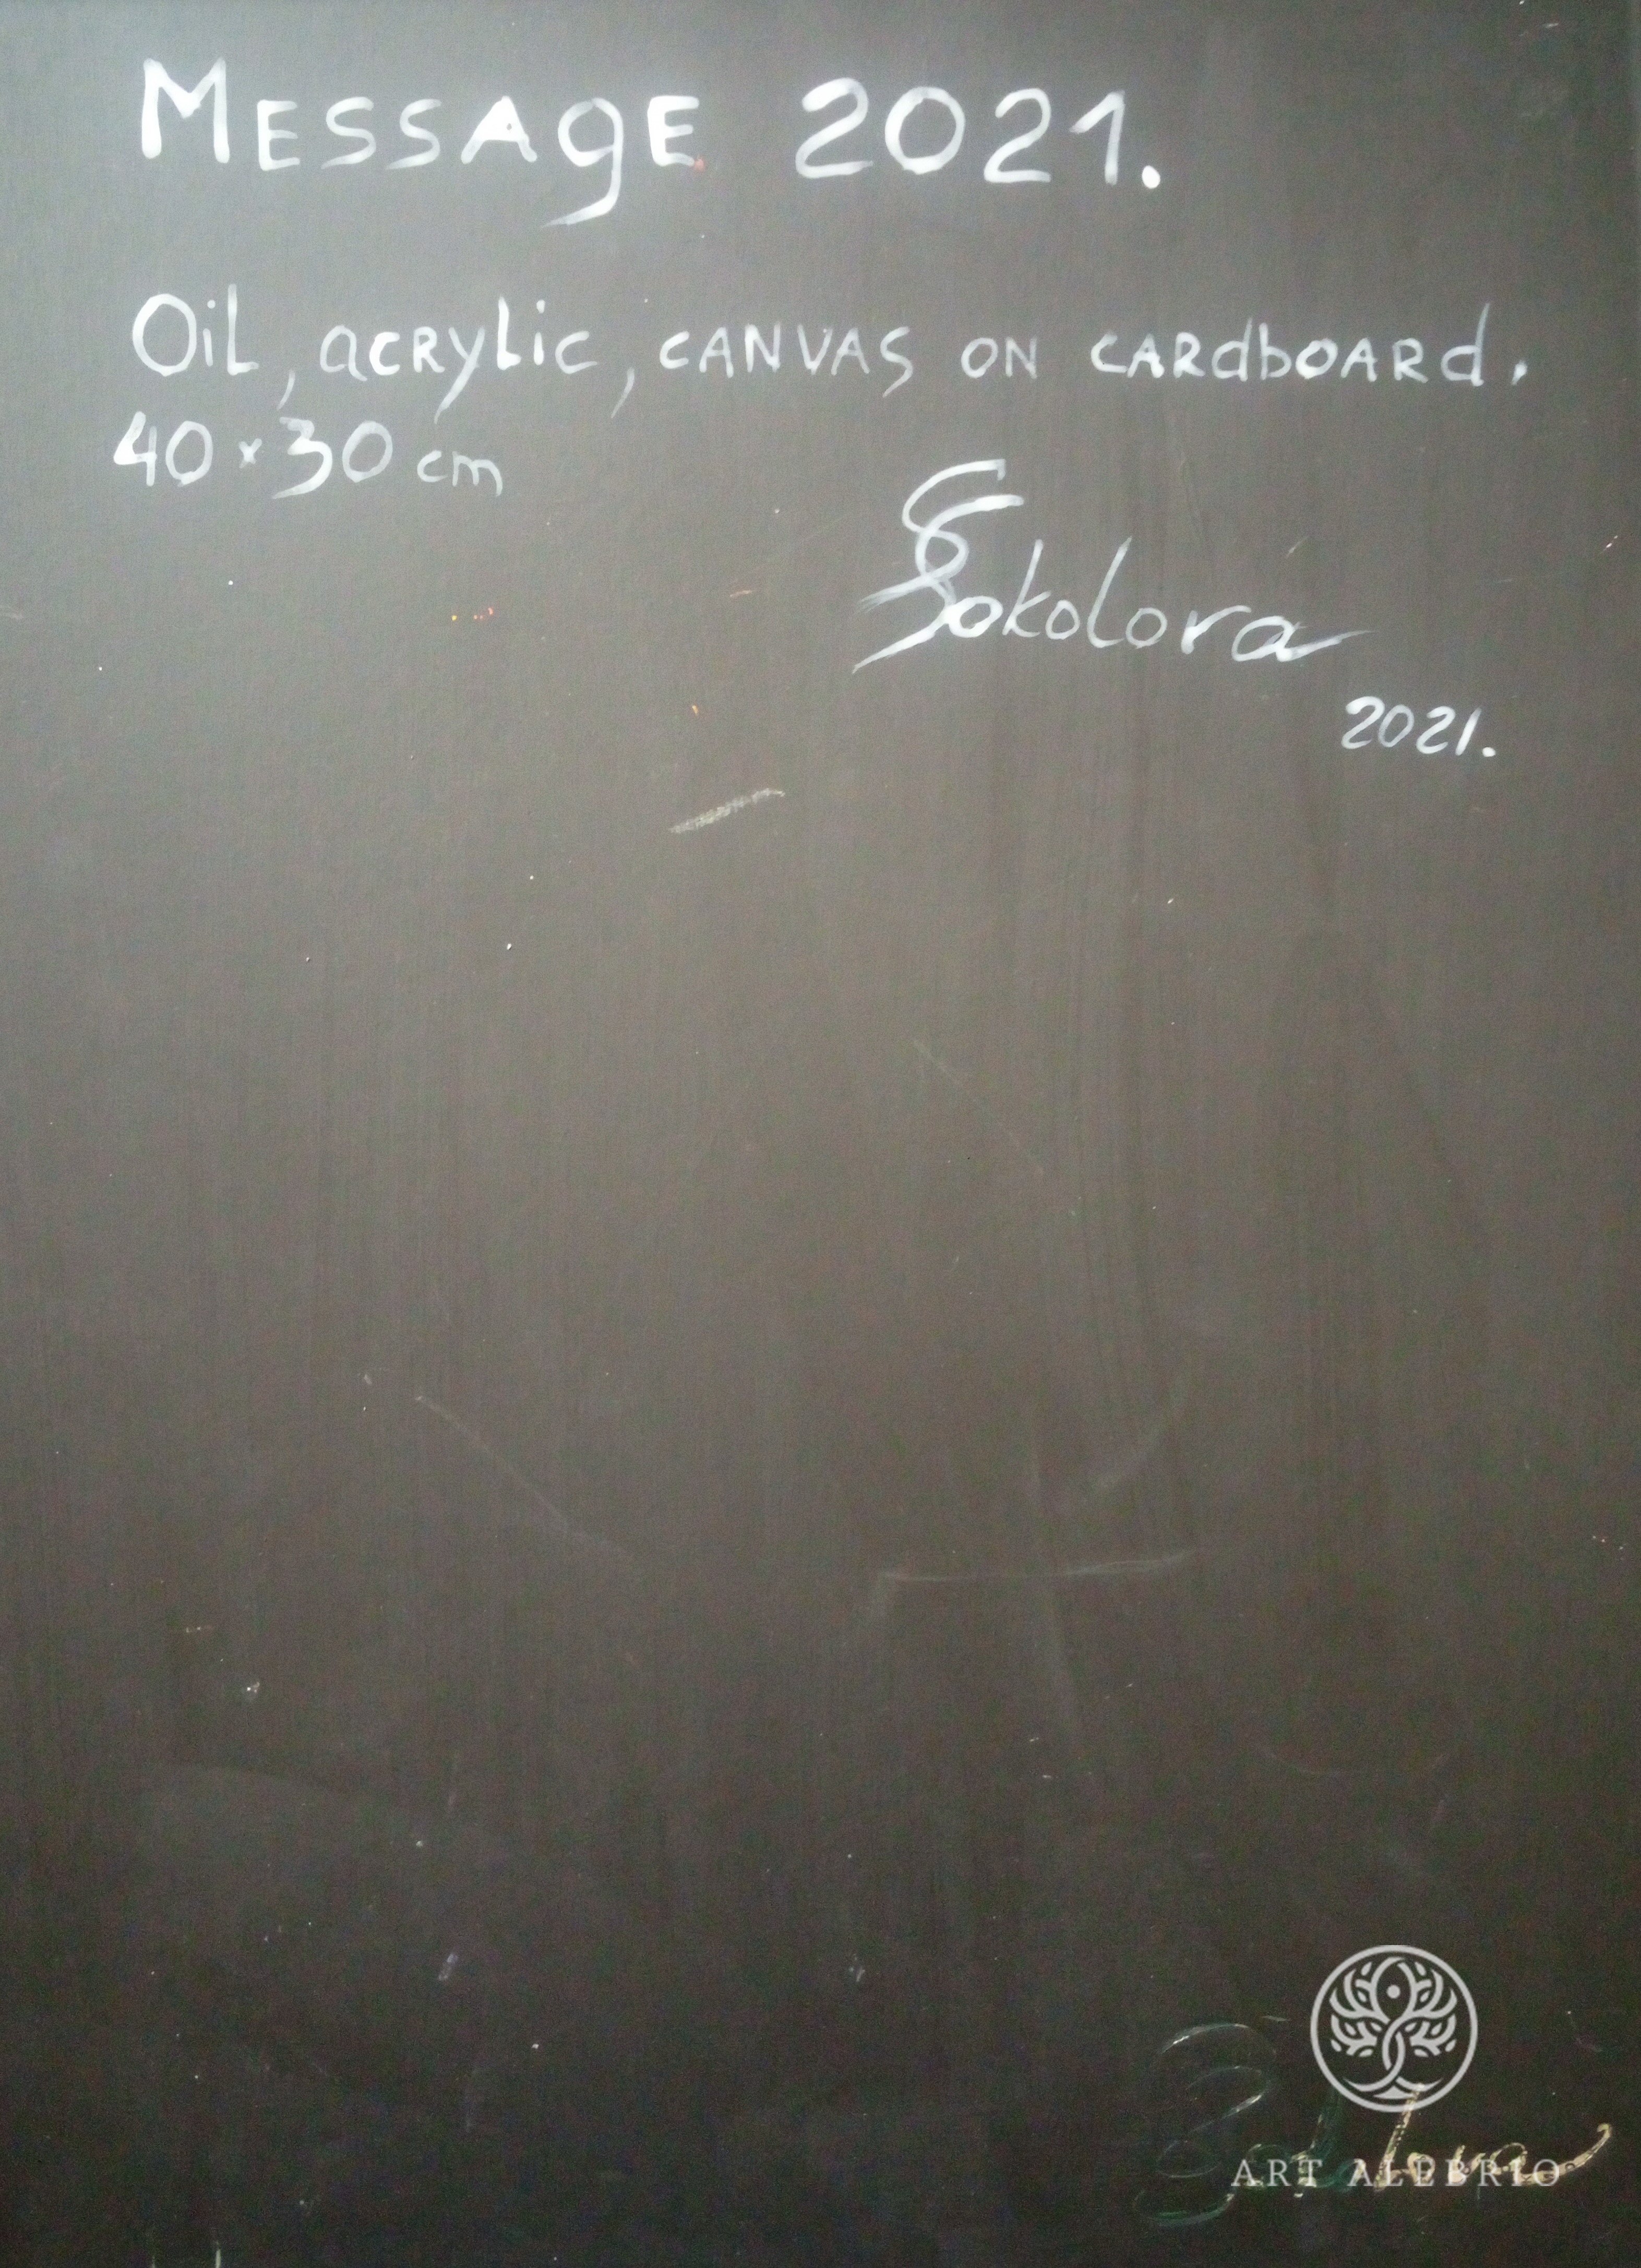 Message 2021.
Oil, acrylic, canvas on cardboard.
40×30 cm
Sokolova
2021.
ART ALEBRIO